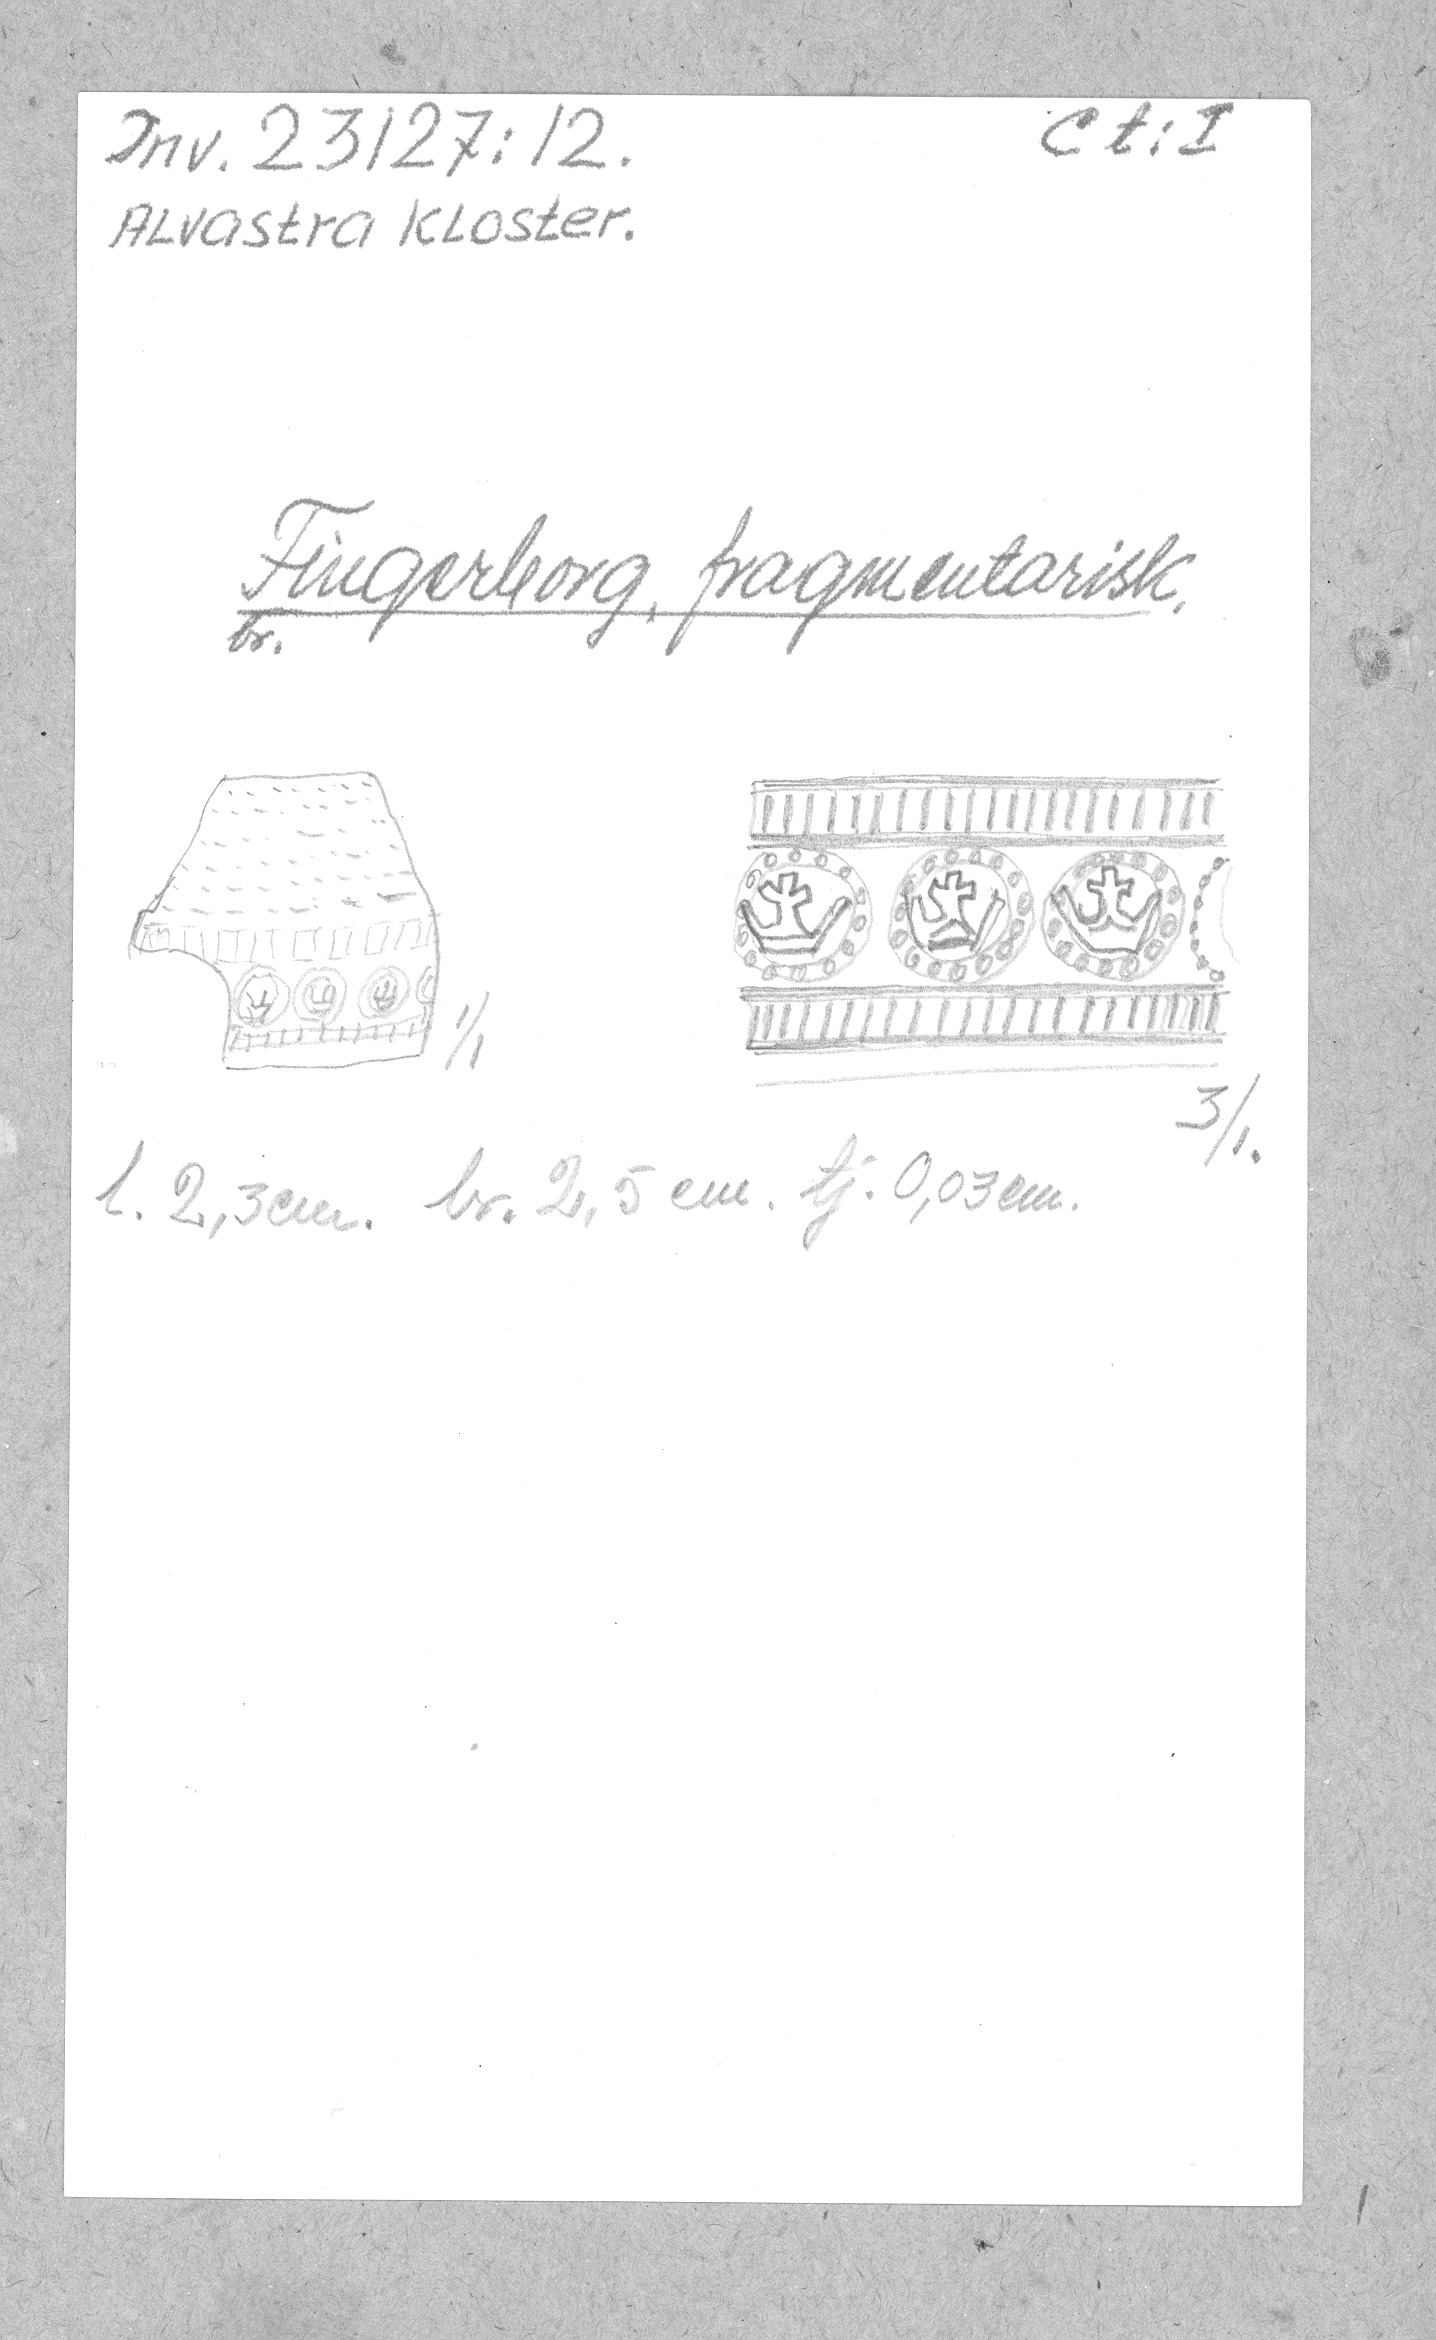 Inv. 23127:12.
Ct:I
Alvastra Kloster.
Fingerborg, fragmentarisk.
br.
1/1
3/1.
l. 2,3cm. br. 2,5 cm. tj. 0,03cm.